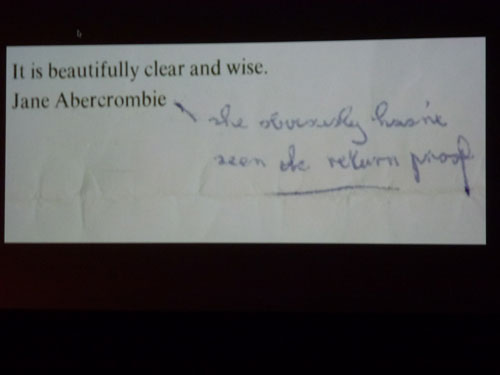 It is beautifully clear and wise.
Jane Abercrombie
she obviously hasn't
seen the return proof